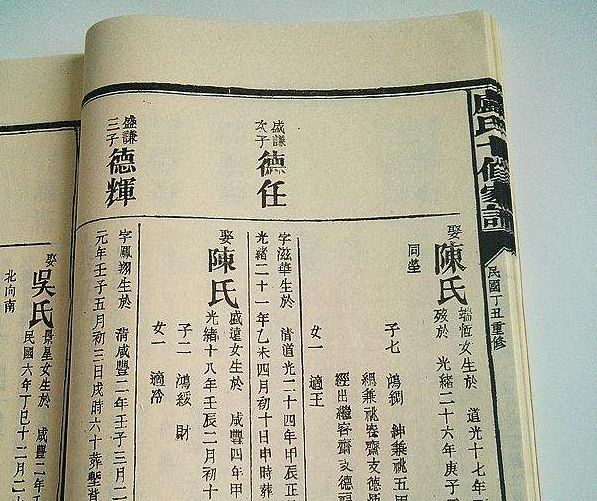 盧氏十修家譜
民國丁丑重修
娶陳氏
瑞恆女生於 道光十七年
歿於 光緒二十六年庚子
同塋
子七 鴻
兼祧五甲
兼祧容齋支德
經出繼容齋支德福
女一 適王
盛謙
次子
德任
字滋華生於 清道光二十四年甲辰正
光緒二十一年乙未四月初十日申時葬
娶陳氏
盛遠女生於 咸豐四年甲
光緒十八年壬辰二月初十
子二 鴻綏 財
女一 適冷
盛謙
三子
德輝
字鳳翔生於 清咸豐二年壬子三月二
元年壬子五月初三日戌時六十葬塋背
娶吳氏
星女生於 咸豐二年
民國六年丁巳十二月二
北向南